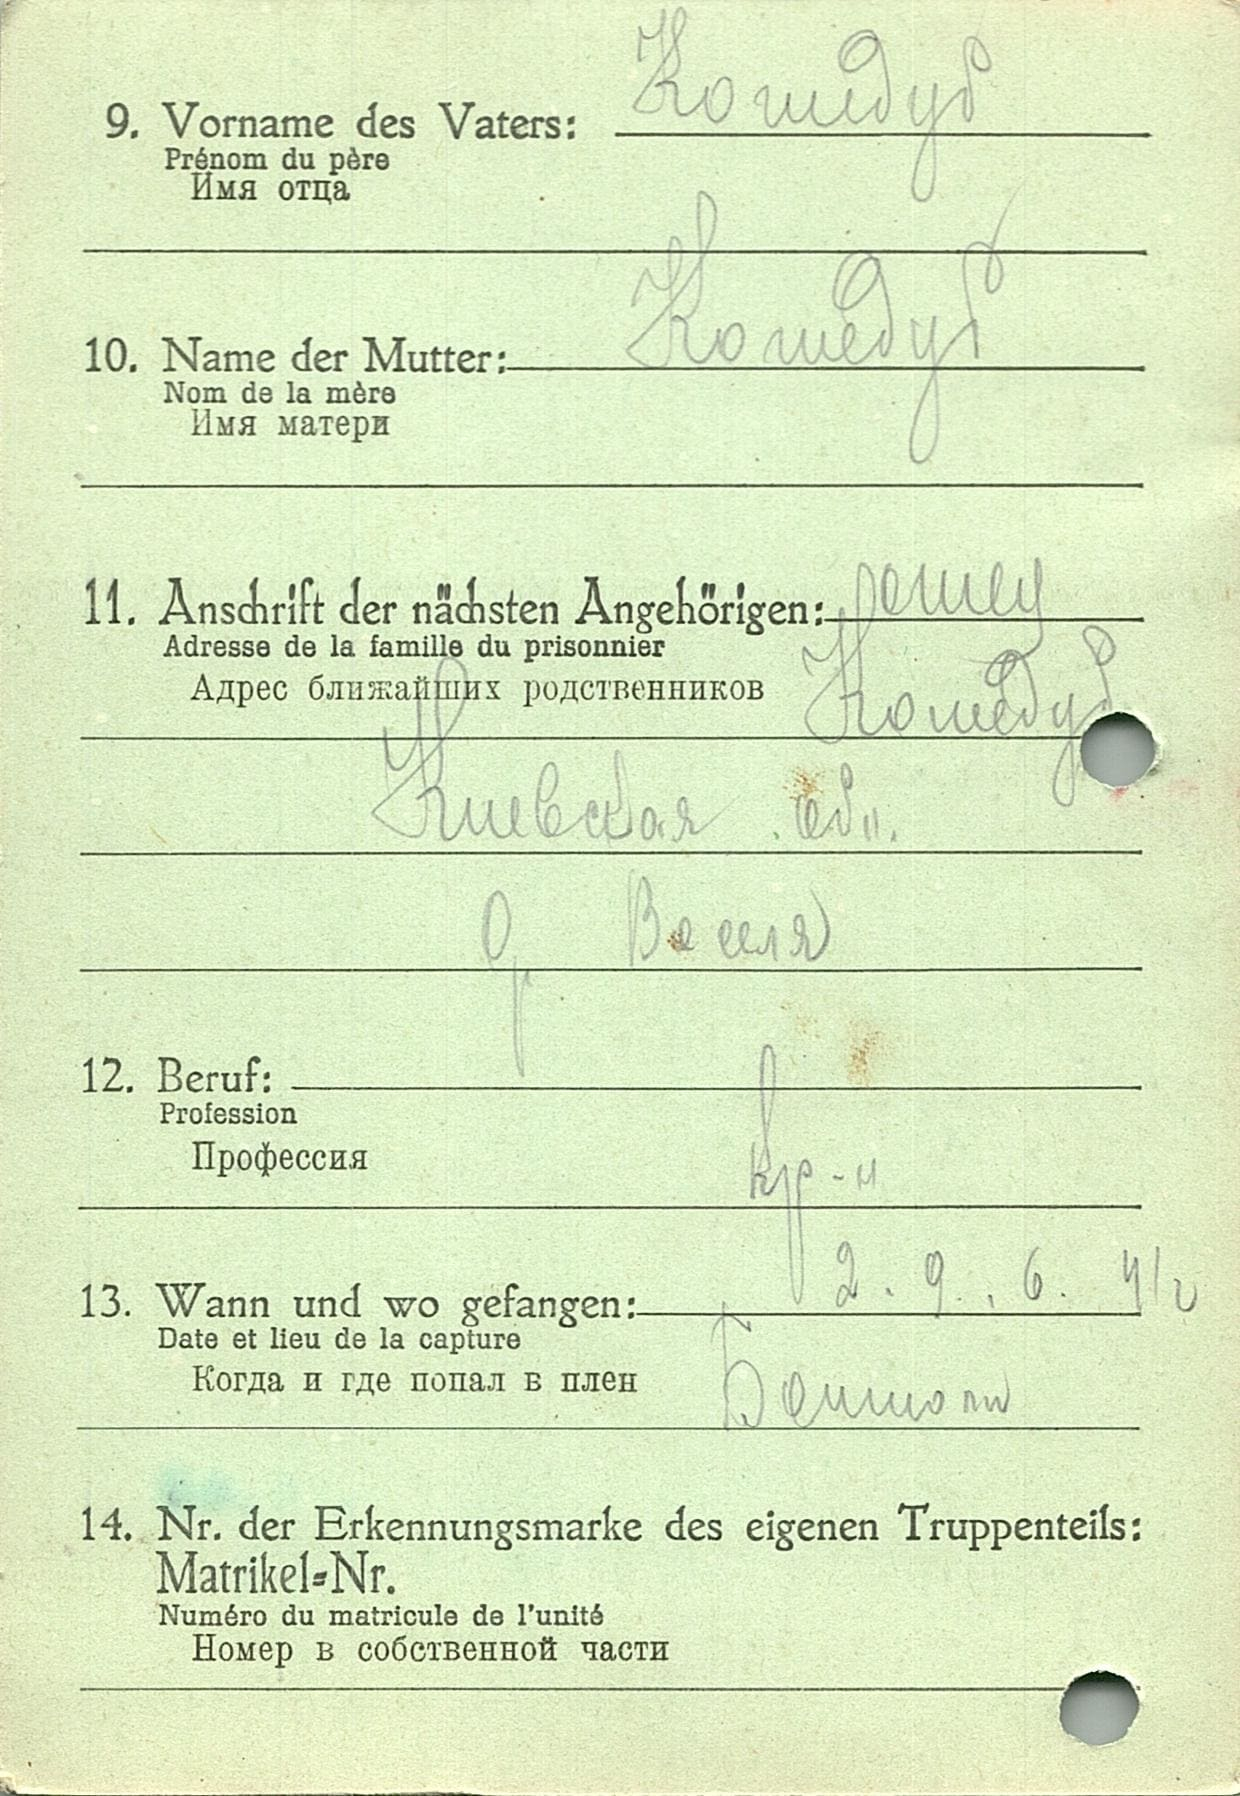 9. Vorname des Vaters: Кошедуб
Prénom du père
Имя отца
10. Name der Mutter: Кошедуб
Nom de la mère
Имя матери
11. Anschrift der nächsten Angehörigen: отец
Adresse de la famille du prisonnier
Адрес ближайших родственников Кошедуб
Киевская обл.
12. Beruf:
Profession
Профессия кр-н
13. Wann und wo gefangen: 2. 9. 6. 41г
Date et lieu de la capture
Когда и где попал в плен
14. Nr. der Erkennungsmarke des eigenen Truppenteils:
Matrikel=Nr.
Numéro du matricule de l'unité
Номер в собственной части